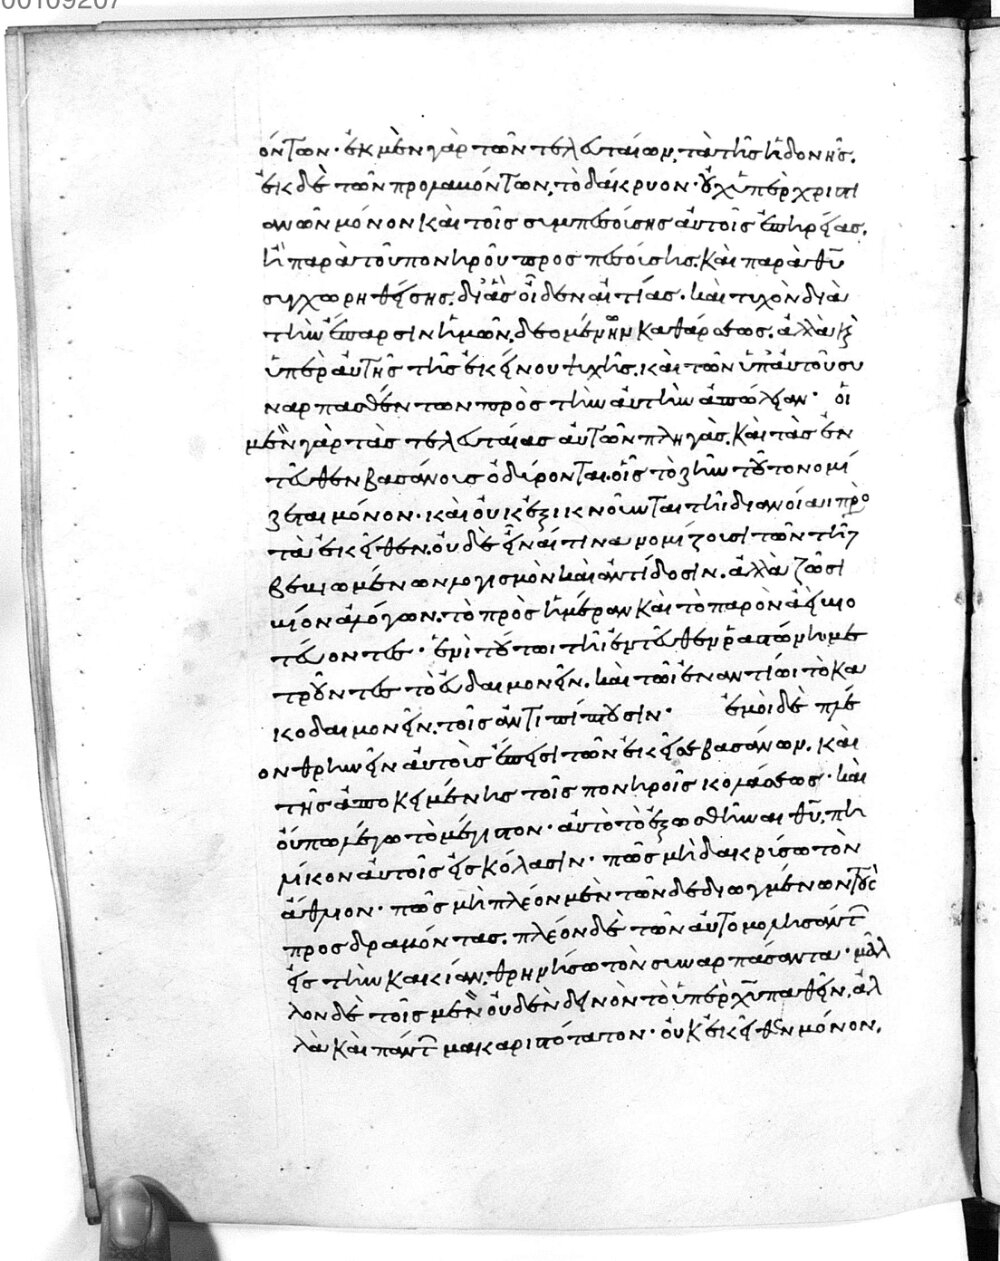 00109207
όντων· ἐκ μὲν γὰρ τῶν τελευταίων, τὰ τῆς ἡδονῆς.
ἐκ δὲ τῶν προλαμόντων, τὸ δάκρυον· οὐχ ὑπὲρ χριστι
ανῶν μόνον καὶ τοῖς συμπεσούσης αὐτοῖς ἐπηρείας,
ἢ παρὰ τοῦ πονηροῦ προσπεσούσης, καὶ παρὰ θῦ
συγχωρηθείσης, δι' ἃς οἶδεν αἰτίας· καὶ τυχὸν διὰ
τὴν ἔπαρσιν ἡμῶν, δεομένην καθάρσεως, ἀλλὰ κὶ
ὑπὲρ αὐτῆς τῆς ἐκείνου ψυχῆς, καὶ τῶν ὑπ' αὐτοῦ συ
ναρπασθέντων πρὸς τὴν αὐτὴν ἀπώλειαν· οἱ
μὲν γὰρ τὰς τελευταίας αὐτῶν πληγὰς, καὶ τὰς ἐν
τεῦθεν βασάνους ὀδύρονται. οἷς τὸ ζῆν τοῦτο νομί
ζεται μόνον· καὶ οὐκ ἐξικνοῦνται τῆι διανοίαι πρὸ
τὰ ἐκεῖθεν, οὐδὲ εἶναί τινα νομίζουσι τῶν τῆι
βεβιωμένων λογισμὸν καὶ ἀντίδοσιν. ἀλλὰ ζῶσι
βίον ἀλόγων, τὸ πρὸς ἡμέραν καὶ τὸ παρὸν ἀξιο
τοῦντες τὸ εὐδαιμονεῖν, καὶ τῶι ἐναντίωι τὸ κα
κοδαιμονεῖν, τοῖς ἀντιπίπτουσιν· ἐμοὶ δὲ πλέ
ον θρηνεῖν αὐτοὺς ἔπεισι τῶν ἐκεῖσε βασάνων, καὶ
τῆς ἀποκειμένης τοῖς πονηροῖς κολάσεως· καὶ
οὔπω λέγω τὸ μέγιστον· αὐτὸ τὸ ἐξωσθῆναι θῦ, πη
λίκον αὐτοῖς εἰς κόλασιν· πῶς μὴ δακρύσω τὸν
ἄθλιον· πῶς μὴ πλέον μὲν τῶν δεδιωγμένων τοὺς
προσδραμόντας, πλέον δὲ τῶν αὐτομολησάντ
εἰς τὴν κακίαν, θρηνήσω τὸν συναρπάσαντα· μᾶλ
λον δὲ τοῖς μὲν οὐδὲν δεινὸν τὸ ὑπὲρ χῦ παθεῖν, ἀλ
λὰ καὶ πάντ μακαριώτατον· οὐκ ἐκεῖθεν μόνον,